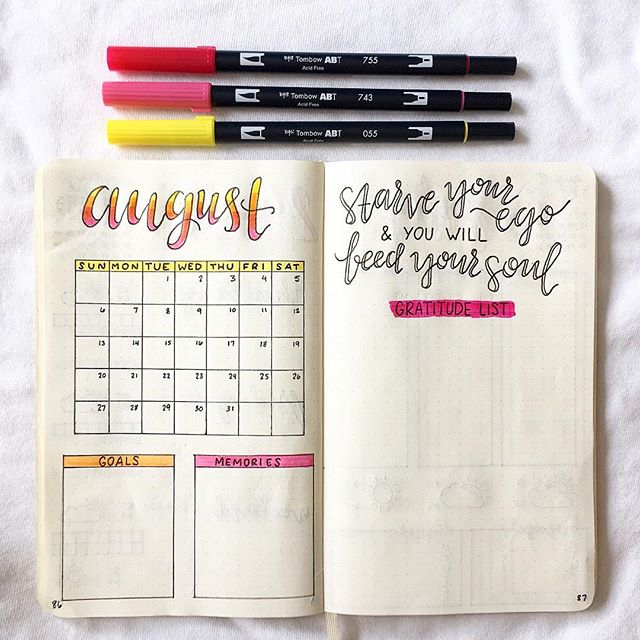 Tombow ABT 755
Acid Free
Tombow ABT 743
Acid Free
Tombow ABT 055
Acid Free
august
SUN MON TUE WED THU FRI SAT
1 2 3 4 5
6 7 8 9 10 11 12
13 14 15 16 17 18 19
20 21 22 23 24 25 26
27 28 29 30 31
GOALS MEMORIES
86
starve your
ego
& YOU WILL
feed your soul
GRATITUDE LIST
87